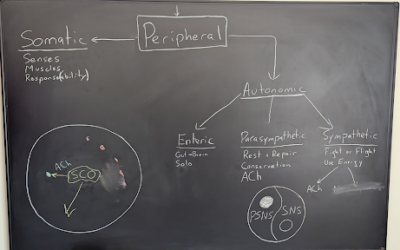 Peripheral
Somatic
Senses
Muscles
Response(ability)
Autonomic
Enteric
Gut-Brain
Solo
Parasympathetic
Rest & Repair
Conservation
ACh
Sympathetic
Fight or Flight
Use Energy
ACh
ACh
SCO
PSNS
SNS